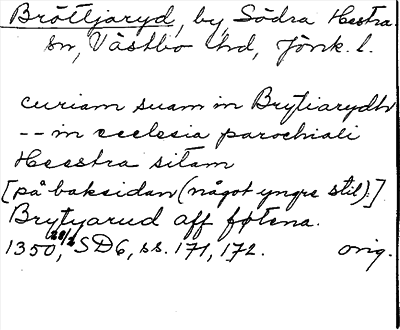 Bröttjaryd, by, Södra Hestra
sn, Västbo hd, Jönk. l.
curiam suam in Brytiarydh
-- in ecclesia parochiali
Heestra sitam
[på baksidan (något yngre stil):]
Brytyarud aff føtena.
1350, 28/2 SD6, ss. 171, 172. orig.